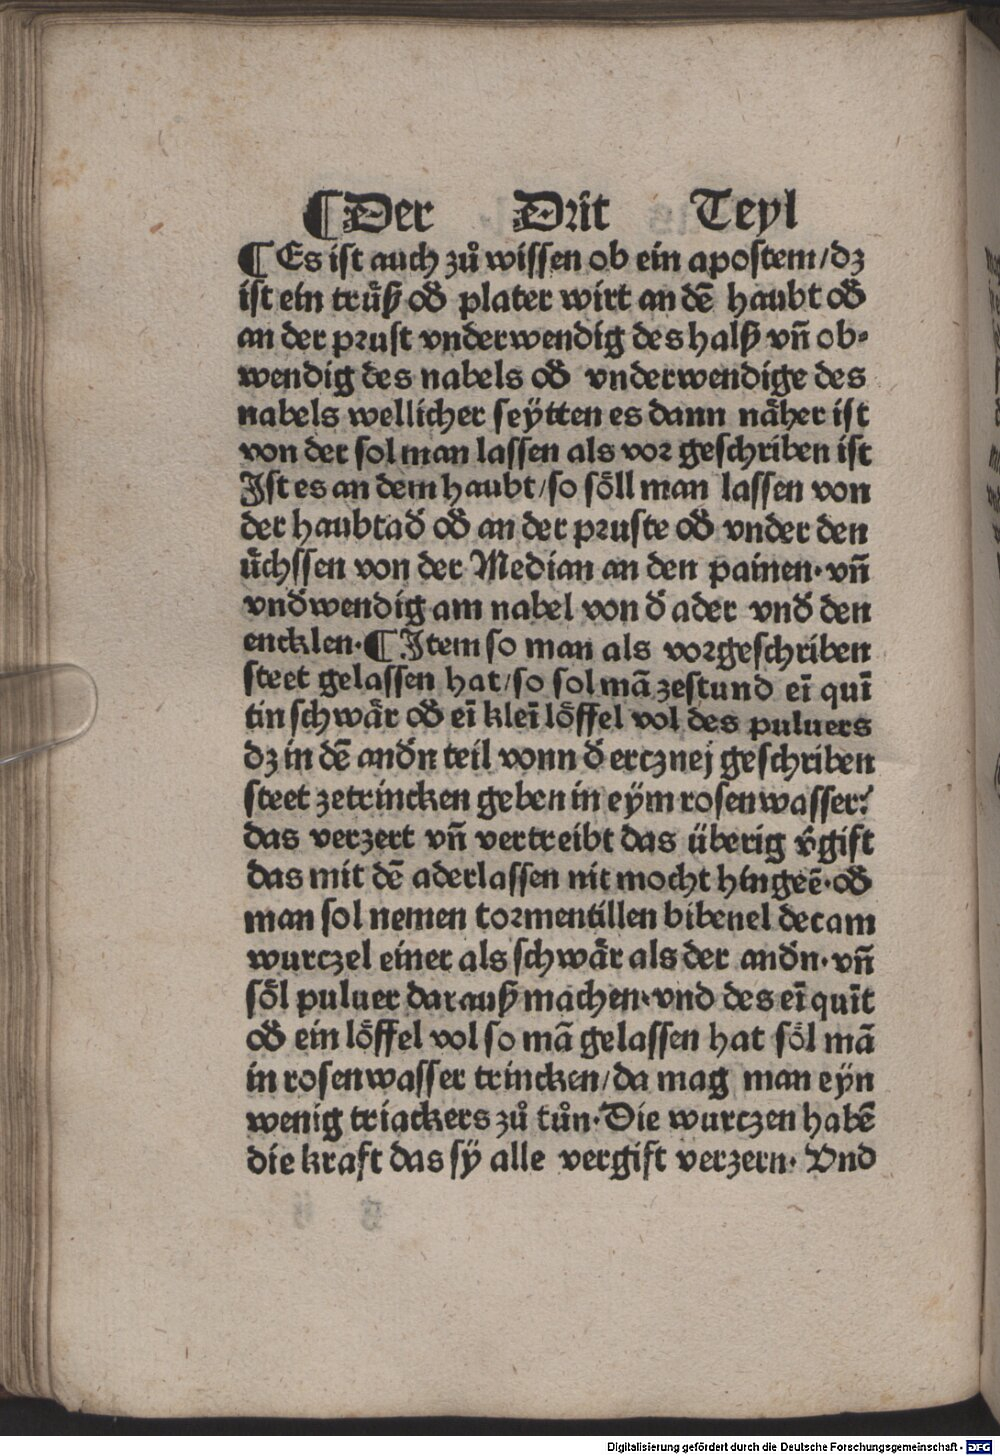 ¶ Der Drit Teyl
¶ Es ist auch zů wissen ob ein apostem/dz
ist ein trüß od̕ plater wirt an dē haubt od̕
an der prust vnderwendig des halß vn̄ ob⸗
wendig des nabels od̕ vnderwendige des
nabels wellicher seÿtten es dann näher ist
von der sol man lassen als vor geschriben ist
Jst es an dem haubt/so söll man lassen von
der haubtad̕ od̕ an der pruste od̕ vnder den
üchssen von der Median an den painen· vn̄
vnd̕wendig am nabel von d̕ ader vnd̕ den
encklen· ¶ Jtem so man als vorgeschriben
steet gelassen hat/so sol mā zestund eī quī
tin schwär od̕ eī kleī löffel vol des puluers
dz in dē and̕n teil vonn d̕ ercznej geschriben
steet zetrincken geben in eÿm rosenwasser:
das verzert vn̄ vertreibt das überig v̕gift
das mit dē aderlassen nit mocht hingeē· od̕
man sol nemen tormentillen bibenel decam
wurczel einer als schwär als der and̕n· vn̄
söl puluer darauß machen· vnd des eī quīt
od̕ ein löffel vol so mā gelassen hat söl mā
in rosenwasser trincken/da mag man eÿn
wenig triackers zů tůn· Die wurczen habē
die kraft das sÿ alle vergift verzern· Vnd
Digitalisierung gefördert durch die Deutsche Forschungsgemeinschaft - DFG